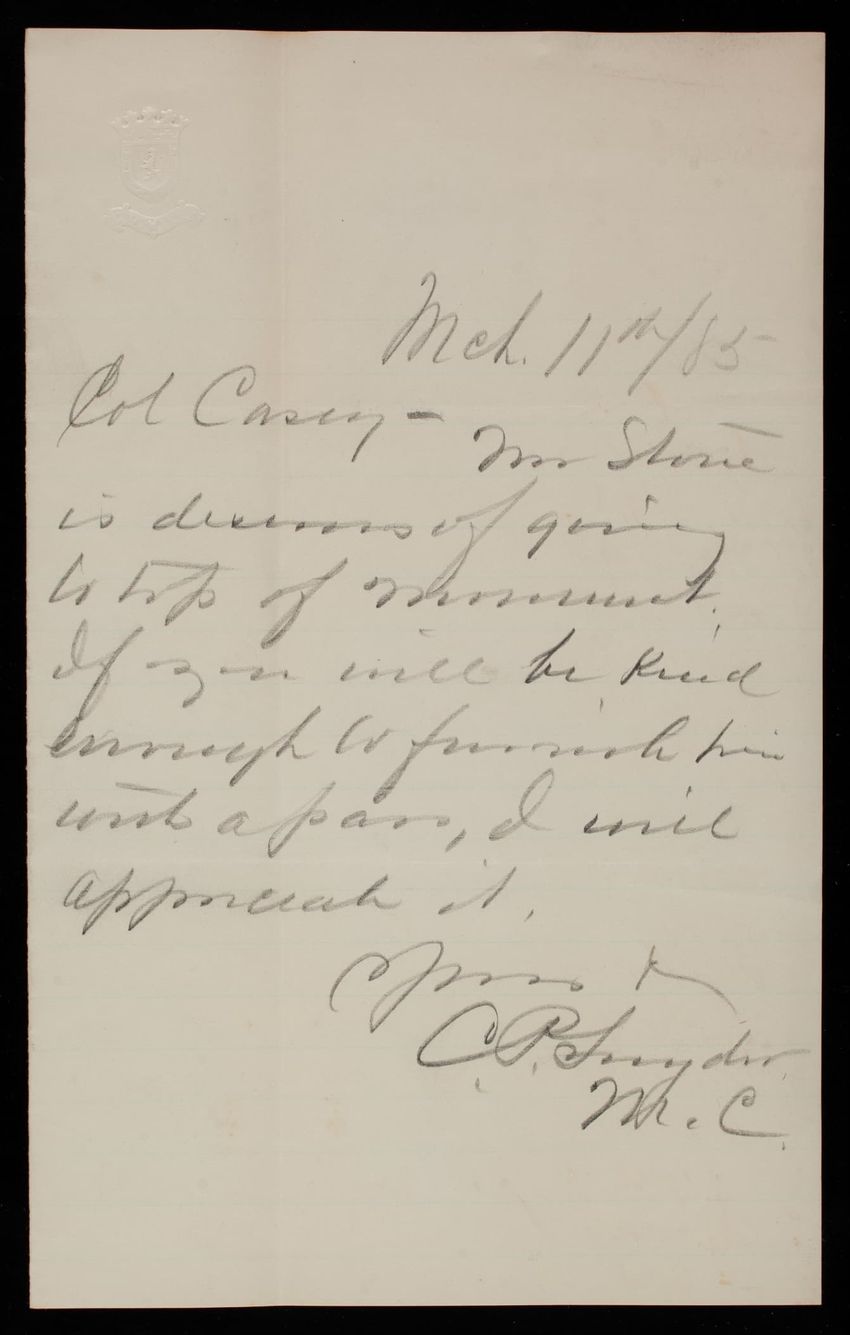 Mch. 11th/85
Col Casey -
Mr Stone
is desirous of going
to top of monument.
If you will be kind
enough to furnish him
with a pass, I will
appreciate it.
Yours &c
C. P. Snyder
M. C.